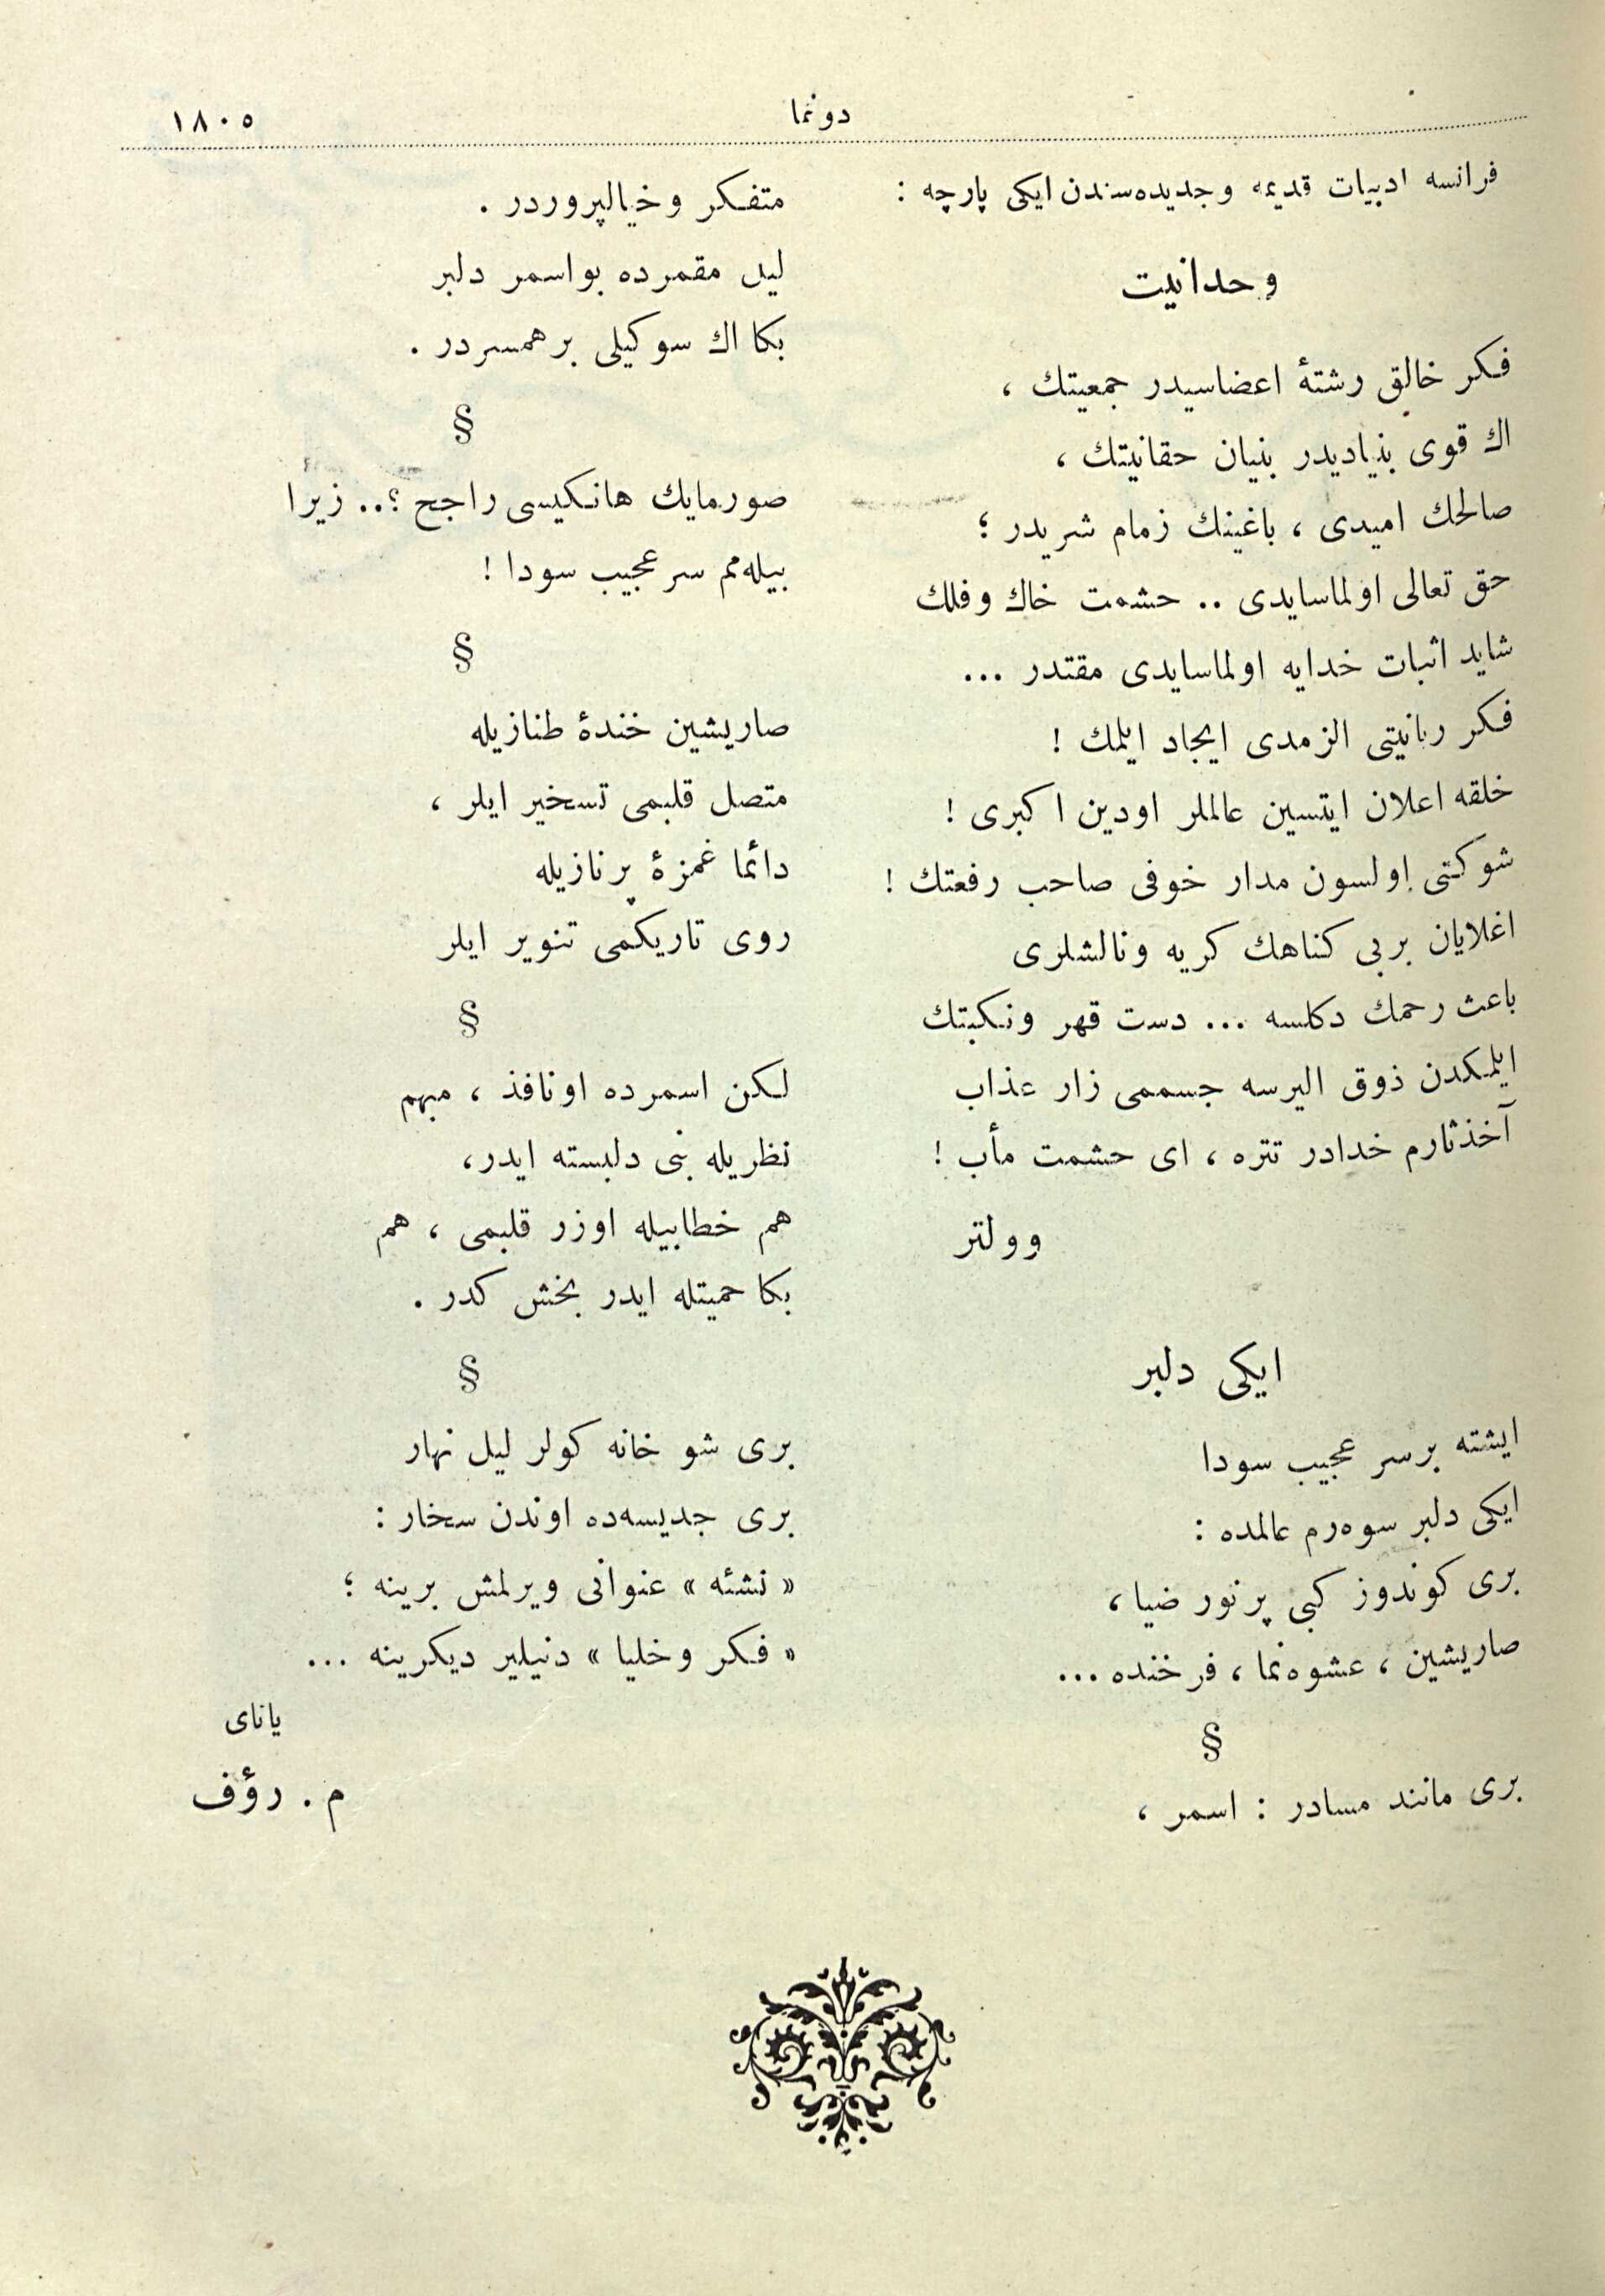 دوننما
١٨٠٥
فرانسه ادبيات قديمه وجديده‌سندن ايكی پارچه :
وحدانيت
فكر خالق رشتۀ اعضاسيدر جمعيتك ،
اك قوی بنياديدر بنيان حقانيتك ،
صالحك اميدی ، باغينك زمام شريدر ؛
حق تعالی اولماسايدی .. حشمت خاك وفلك
شايد اثبات خدايه اولماسايدی مقتدر ...
فكر ربانيتی الزمدی ايجاد ايلمك !
خلقه اعلان ايتسين عالملر اودين اكبری !
شوكتی اولسون مدار خوفی صاحب رفعتك !
اغلايان بربی كناهك كريه ونالشلری
باعث رحمك دكلسه ... دست قهر ونكبتك
ايلمكدن ذوق اليرسه جسممی زار عذاب
آخذثارم خدادر تتره ، ای حشمت مأب !
وولتر
ايكی دلبر
ايشته برسر عجيب سودا
ايكی دلبر سوه‌رم عالمده :
بری كوندوز كبی پرنور ضيا ،
صاريشين ، عشوه‌نما ، فرخنده ...
§
بری مانند مسادر : اسمر ،
متفكر وخيالپروردر .
ليل مقمرده بواسمر دلبر
بكا اك سوكيلی برهمسردر .
§
صورمايك هانكيسی راجح ؟.. زيرا
بيله‌مم سر عجيب سودا !
§
صاريشين خندۀ طنازيله
متصل قلبمی تسخير ايلر ،
دائما غمزۀ پرنازيله
روی تاريكمی تنوير ايلر
§
لكن اسمرده اونافذ ، مبهم
نظريله بنی دلبسته ايدر،
هم خطابيله اوزر قلبمی ، هم
بكا حميتله ايدر بخش كدر .
§
بری شو خانه كولر ليل نهار
بری جديسه‌ده اوندن سخار :
« نشئه » عنوانی ويرلمش برينه ؛
« فكر وخليا » دنيلير ديكرينه ...
يانای
م . رؤف